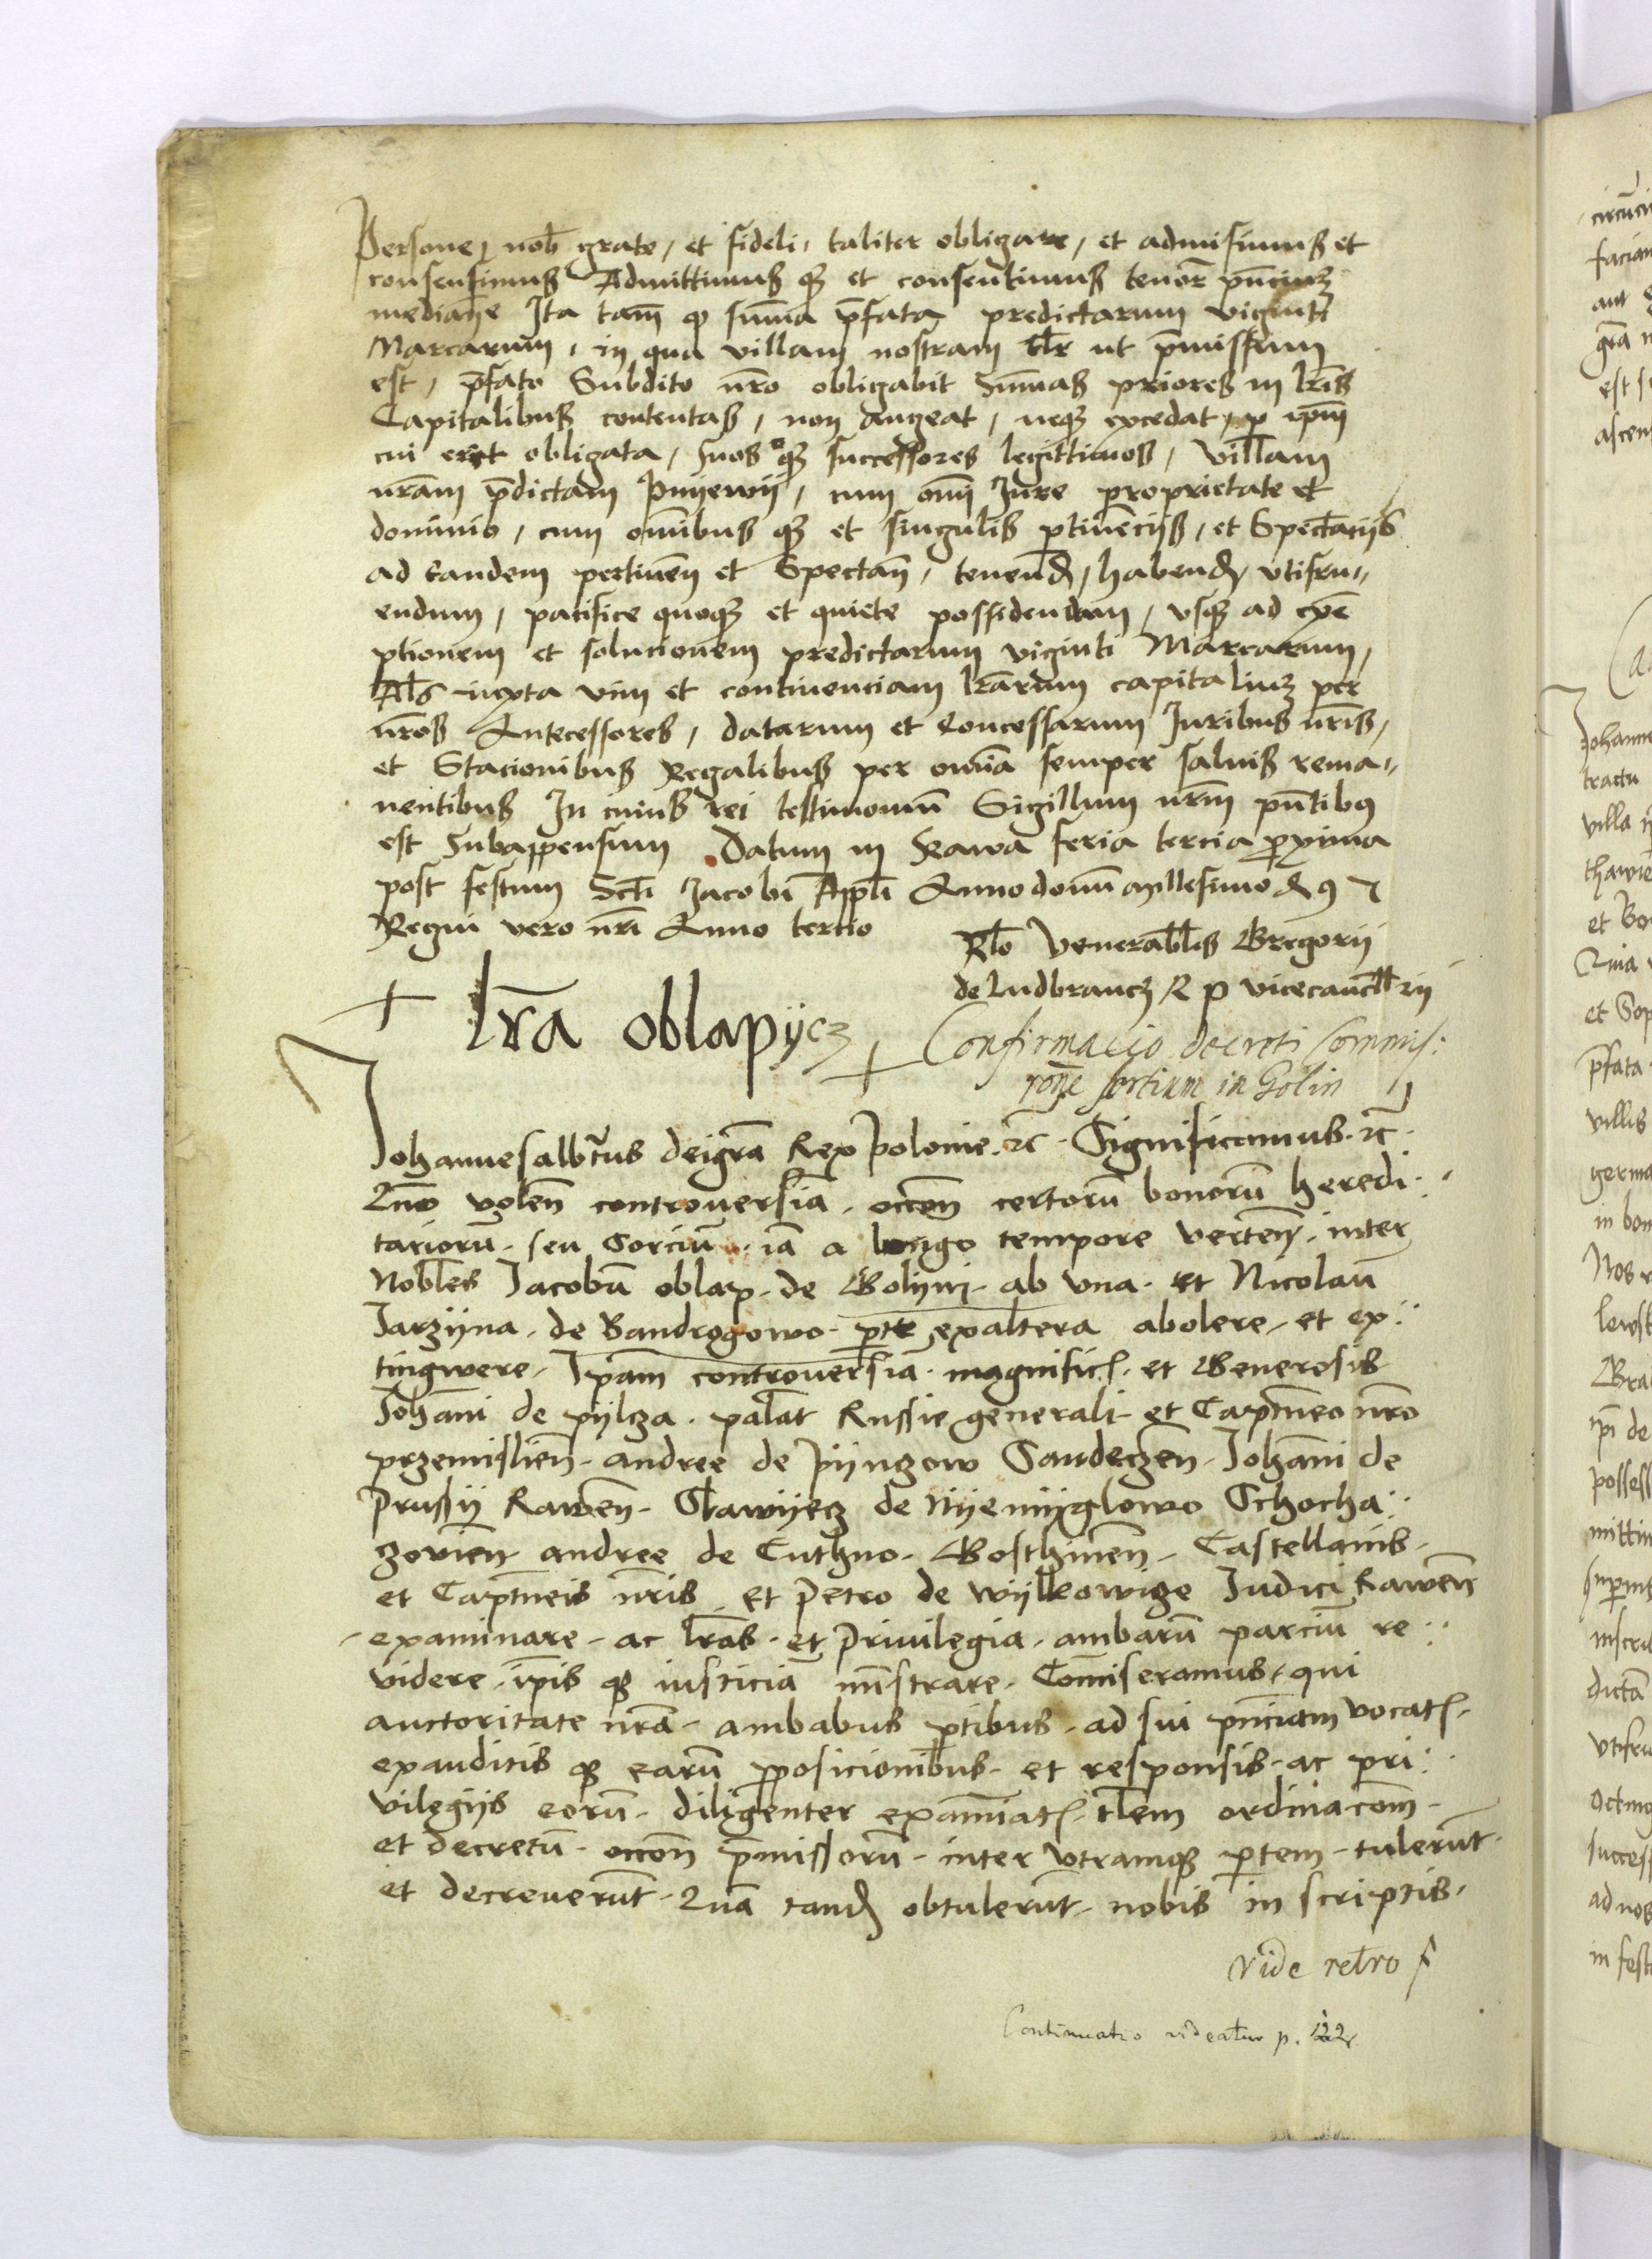 Persone nob̄ grate, et fideli, taliter obligare, et admisimus et
consensimus Admittimus q3 et consentimus tenor̄ pn̄cium
median̄e Ita tam̄ q sum̄a p̄fata predictarum viginti
Marcarum, in qua villam nostram tlr ut p̄missum
est, p̄fato Subdito nr̄o obligabit Sum̄as priores in lr̄is
Capitalibus contentas, non augeat, neq3 excedat, p ip̄m
cui erit obligata, suos q3 successores legittimos, villam
nr̄am p̄dictam Pnyewy, cum om̄i Jure proprietate et
dominio, cum om̄ibus q3 et singulis ptinēciis, et Spectaciis
ad eandem pertinen̄ et Spectan̄, tenend, habend, vtifru„
endum, pacifice quoq3 et quiete possidendam, vsq3 ad exē
ptionem et solucionem predictarum viginti Marcarum,
Als iuxta vim et continenciam lr̄arum capitalium per
nr̄os Antecessores, datarum et Concessarum Juribus nr̄is,
et Stacionibus Regalibus per omnia semper saluis rema„
nentibus In cuius rei testimoniū Sigillum nr̄m pn̄tibus
est Subappensum Datum in Rawa feria tercia p̄xima
post festum Scti Jacobi Appli Anno domī millesimo
Regni vero nr̄i Anno tertio
Rlo Venerabilis Gregorii
de Ludbrancz R P vicecancllrii
lr̄a oblapycz
Confirmacio decreti Commis:
rone sortium in Golin
Johannes albtus dei gr̄a Rex polonie. rc̄. Significamus. rc̄.
Quō volen̄ controuersiā. occon̄ certorū bonorū heredi:
tariorū. seu Sorciū. iā a longo tempore verten̄. inter
Nobiles Jacobū oblap. de Golyni. ab vna. et Nicolaū
Jarzyna. de Bandrogowo. pte ex altera abolere, et ex:
tingwere. Ipam controuersiā. magnific. et Generosis
Johān̄i de pylcza. palat̄ Russie generali et Captneo nr̄o
przemislien̄. andree de pyngow Sandeczen̄. Johān̄i de
prussy Rawen̄. Slawyecz de nyemyglowo Schocha:
zovien̄ andree de Cuthno. Gosthinen̄. Castellanis.
et Captneis nr̄is. et Petro de wylkowize Judici Rawen̄
examinare. ac lr̄as. et Priuilegia. ambarū parciū re:
videre. ipis q3 iusticiā mīstrare. Comiseramus. qui
auctoritate nr̄a. ambabus ptibus. ad sui pn̄ciam vocat.
exauditis q3 earū pposicionibus. et responsis. ac pri:
vilegiis eorū. diligenter examīat. tlem ordinacom̄.
et decretū. occon̄ p̄missorū. inter vtramq3 ptem. tulerūt.
et decreuerūt. Quā tand obtulerūt. nobis in scriptis.
vide retro f
Continuatio videatur p. 122